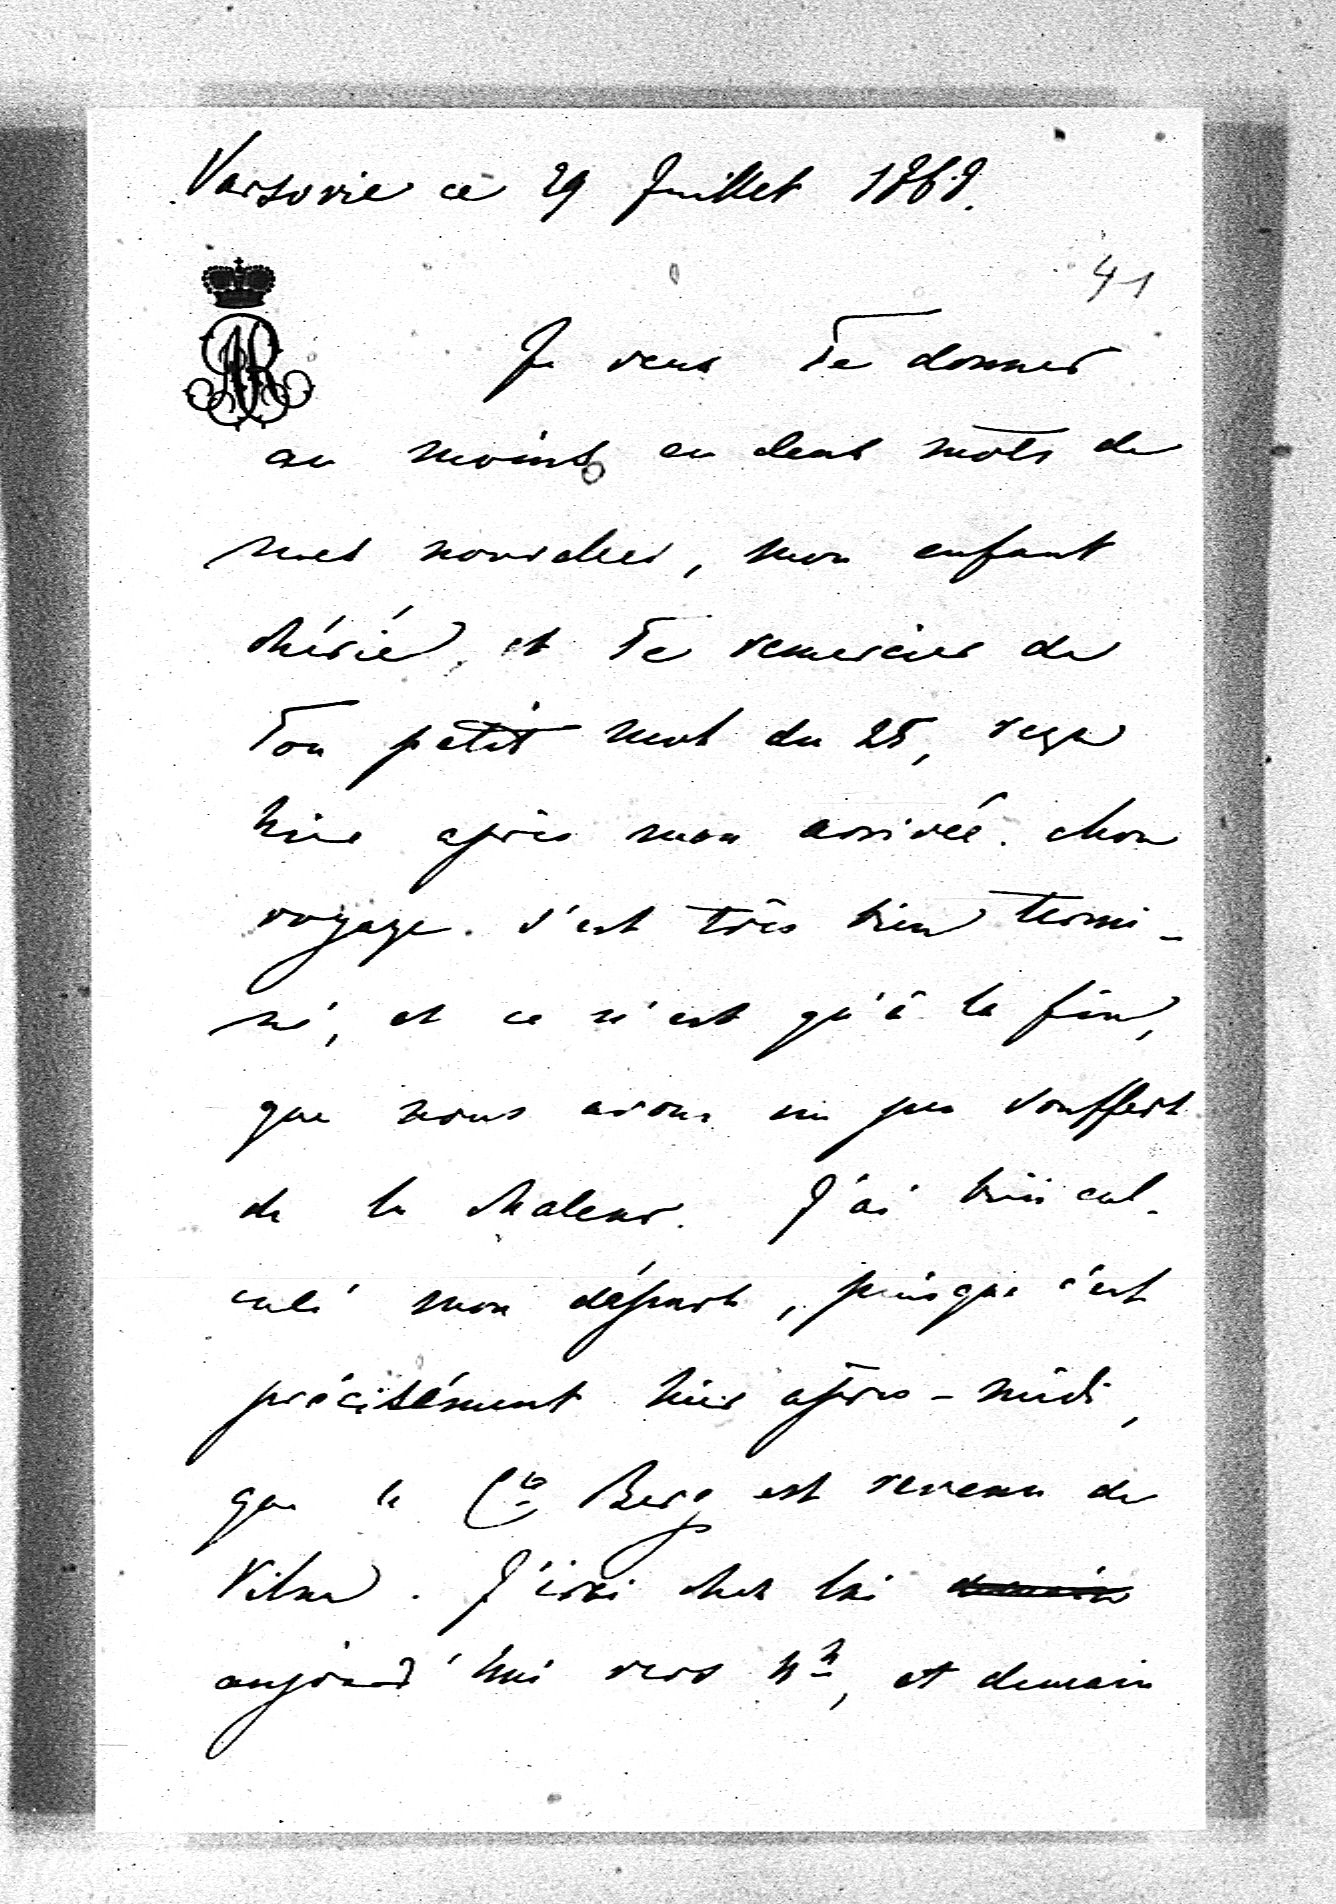 Varsovie ce 29 Juillet 1869.
41
Je veux Te donner
au moins en deux mots de
mes nouvelles, mon enfant
chérie, et Te remercier de
Ton petit mot du 25, reçu
hier après mon arrivée. Mon
voyage s'est très bien termi-
né, et ce n'est qu'à la fin,
que nous avons un peu souffert
de la chaleur. J'ai bien cal-
culé mon départ, puisque c'est
précisément hier après-midi,
que le Cte Berg est revenu de
Vilna. J'irai chez lui demain
aujourd'hui vers 4h, et demain